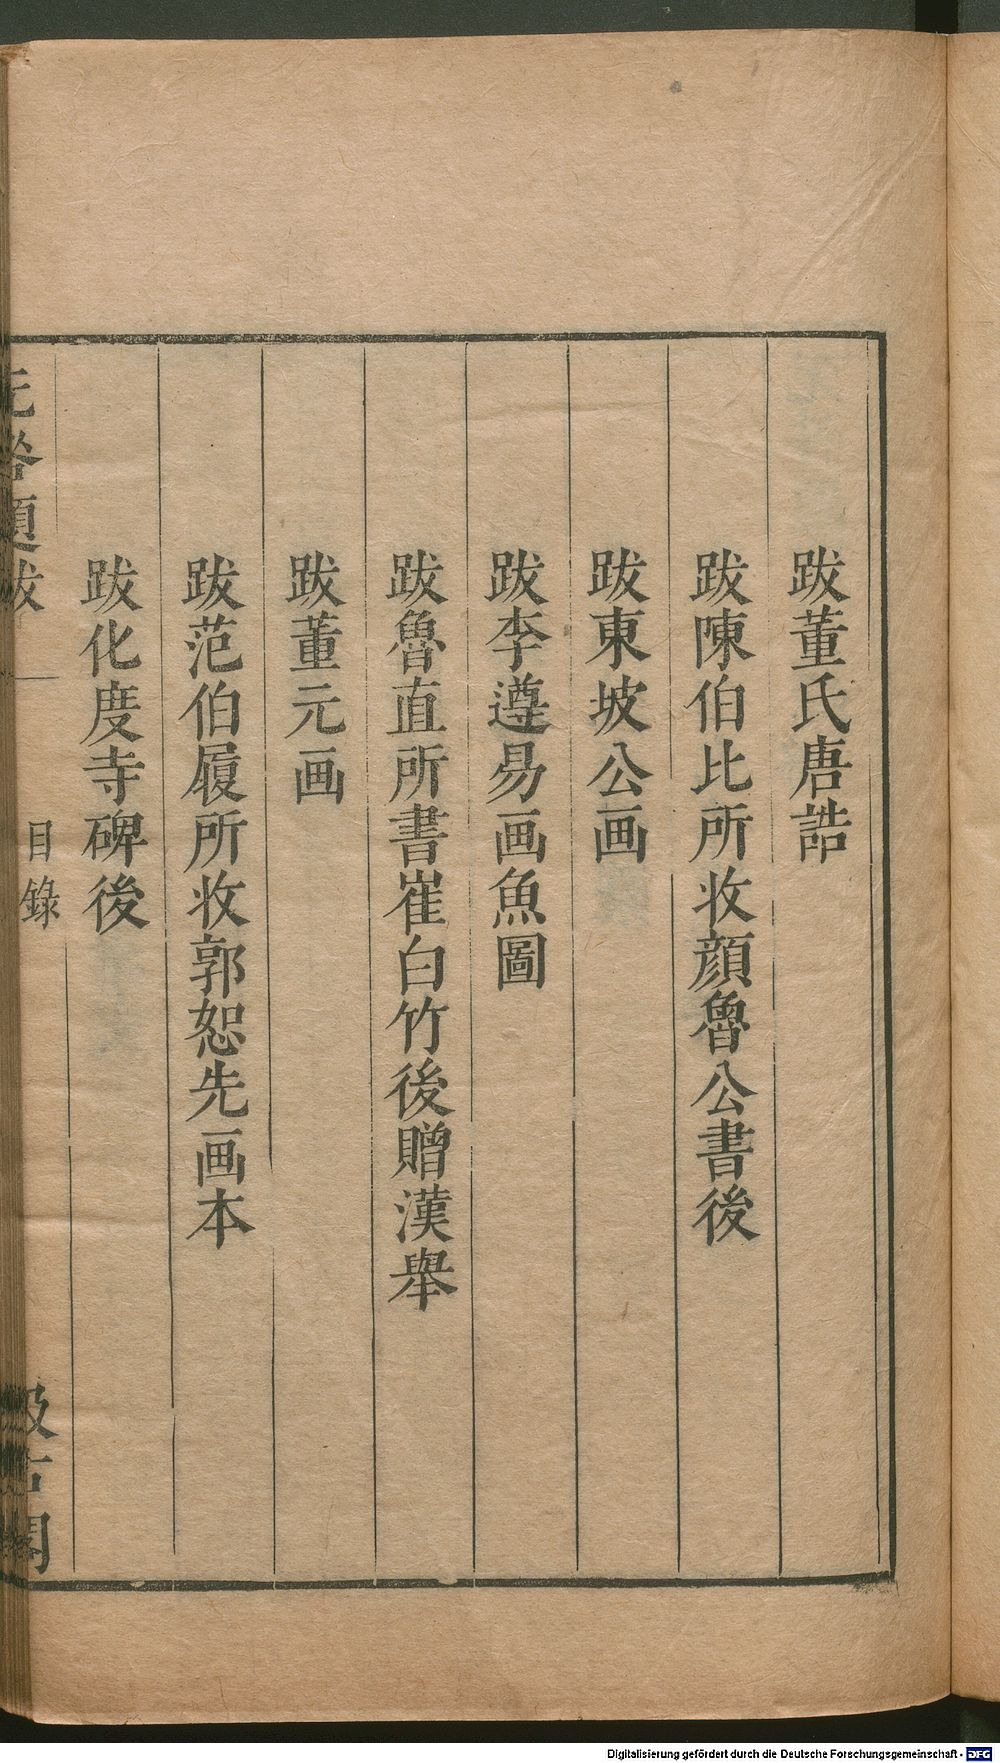 跋董氏唐誥
跋陳伯比所收顔魯公書後
跋東坡公画
跋李遵易画魚圖
跋魯直所書崔白竹後贈漢舉
跋董元画
跋范伯履所收郭恕先画本
跋化度寺碑後
題跋
目錄
汲古閣
Digitalisierung gefördert durch die Deutsche Forschungsgemeinschaft - DFG